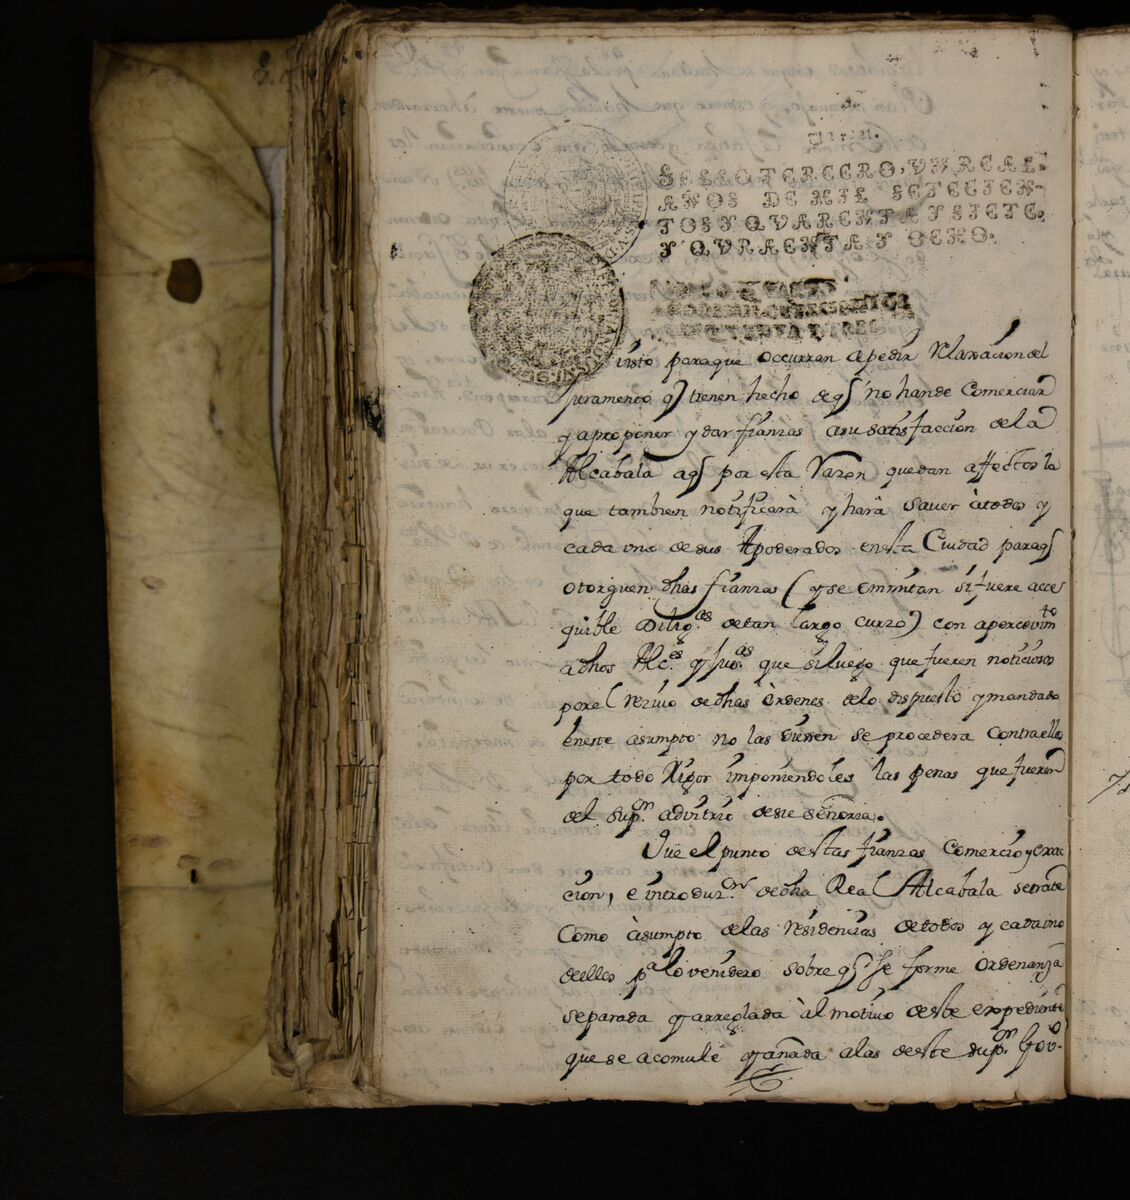 SELLO TERCERO, VN REAL:
AÑOS DE MIL SETECIEN-
TOS Y QVARENTA Y SIETE,
Y QVRAENTA, Y OCHO.
justo paraque occurran apedir Relaxacion del
juramento q̃ tienen hecho deq̃ no hande Comerciar
y aproponer y dar fianzas asu satisfaccion dela
Alcabala aq̃ por esta Razon quedan affectos la
que tambien notificarà y harà saver àtodos y
cada uno desus Apoderados enesta Ciudad paraq̃
otorguen dhas fianzas (y se emmitan si fuere acces
quible Dilig.as detan largo curzo) con apercevim.to
adhos Alc.es y Jus.as que siluego que fueren noticiosos
porel reziuo dedhas òrdenes delo dispuesto y mandado
eneste asumpto no las dieren se procedera Contraellos
por todo Rigor imponiendoles las penas que fueren
del sup.or advitrio deste señoria.
Que el punto destas fianzas Comercio y exac
cion, e introduz.on dedha Real Alcabala setrate
Como àsumpto delas residencias detodos y cadauno
deellos p.a lo venidero sobre q̃ se forme ordenanza
separada y arreglada àl motivo deeste expediente
que se acomule y añada alas deeste sup.or Gov.o